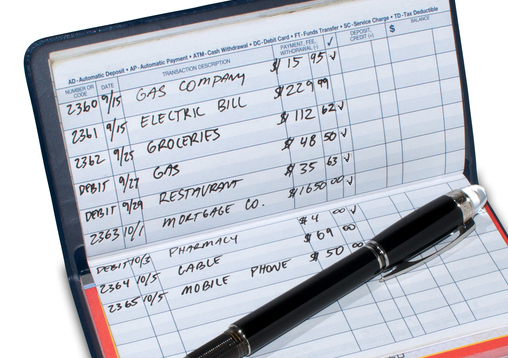 AD-Automatic Deposit • AP-Automatic Payment • ATM-Cash Withdrawal • DC-Debit Card • FT-Funds Transfer • SC-Service Charge • TD-Tax Deductible
NUMBER OR CODE DATE TRANSACTION DESCRIPTION PAYMENT, FEE, WITHDRAWAL (-) ✓ DEPOSIT, CREDIT (+) $ BALANCE
2360 9/15 GAS COMPANY $15 95 ✓
2361 9/15 ELECTRIC BILL $229 99
2362 9/25 GROCERIES $112 62 ✓
DEBIT 9/27 GAS $48 50 ✓
DEBIT 9/29 RESTAURANT $35 63 ✓
2363 10/1 MORTGAGE CO. $1650 00 ✓
DEBIT 10/3 PHARMACY $4 00 ✓
2364 10/5 CABLE $69 00
2365 10/5 MOBILE PHONE $50 00